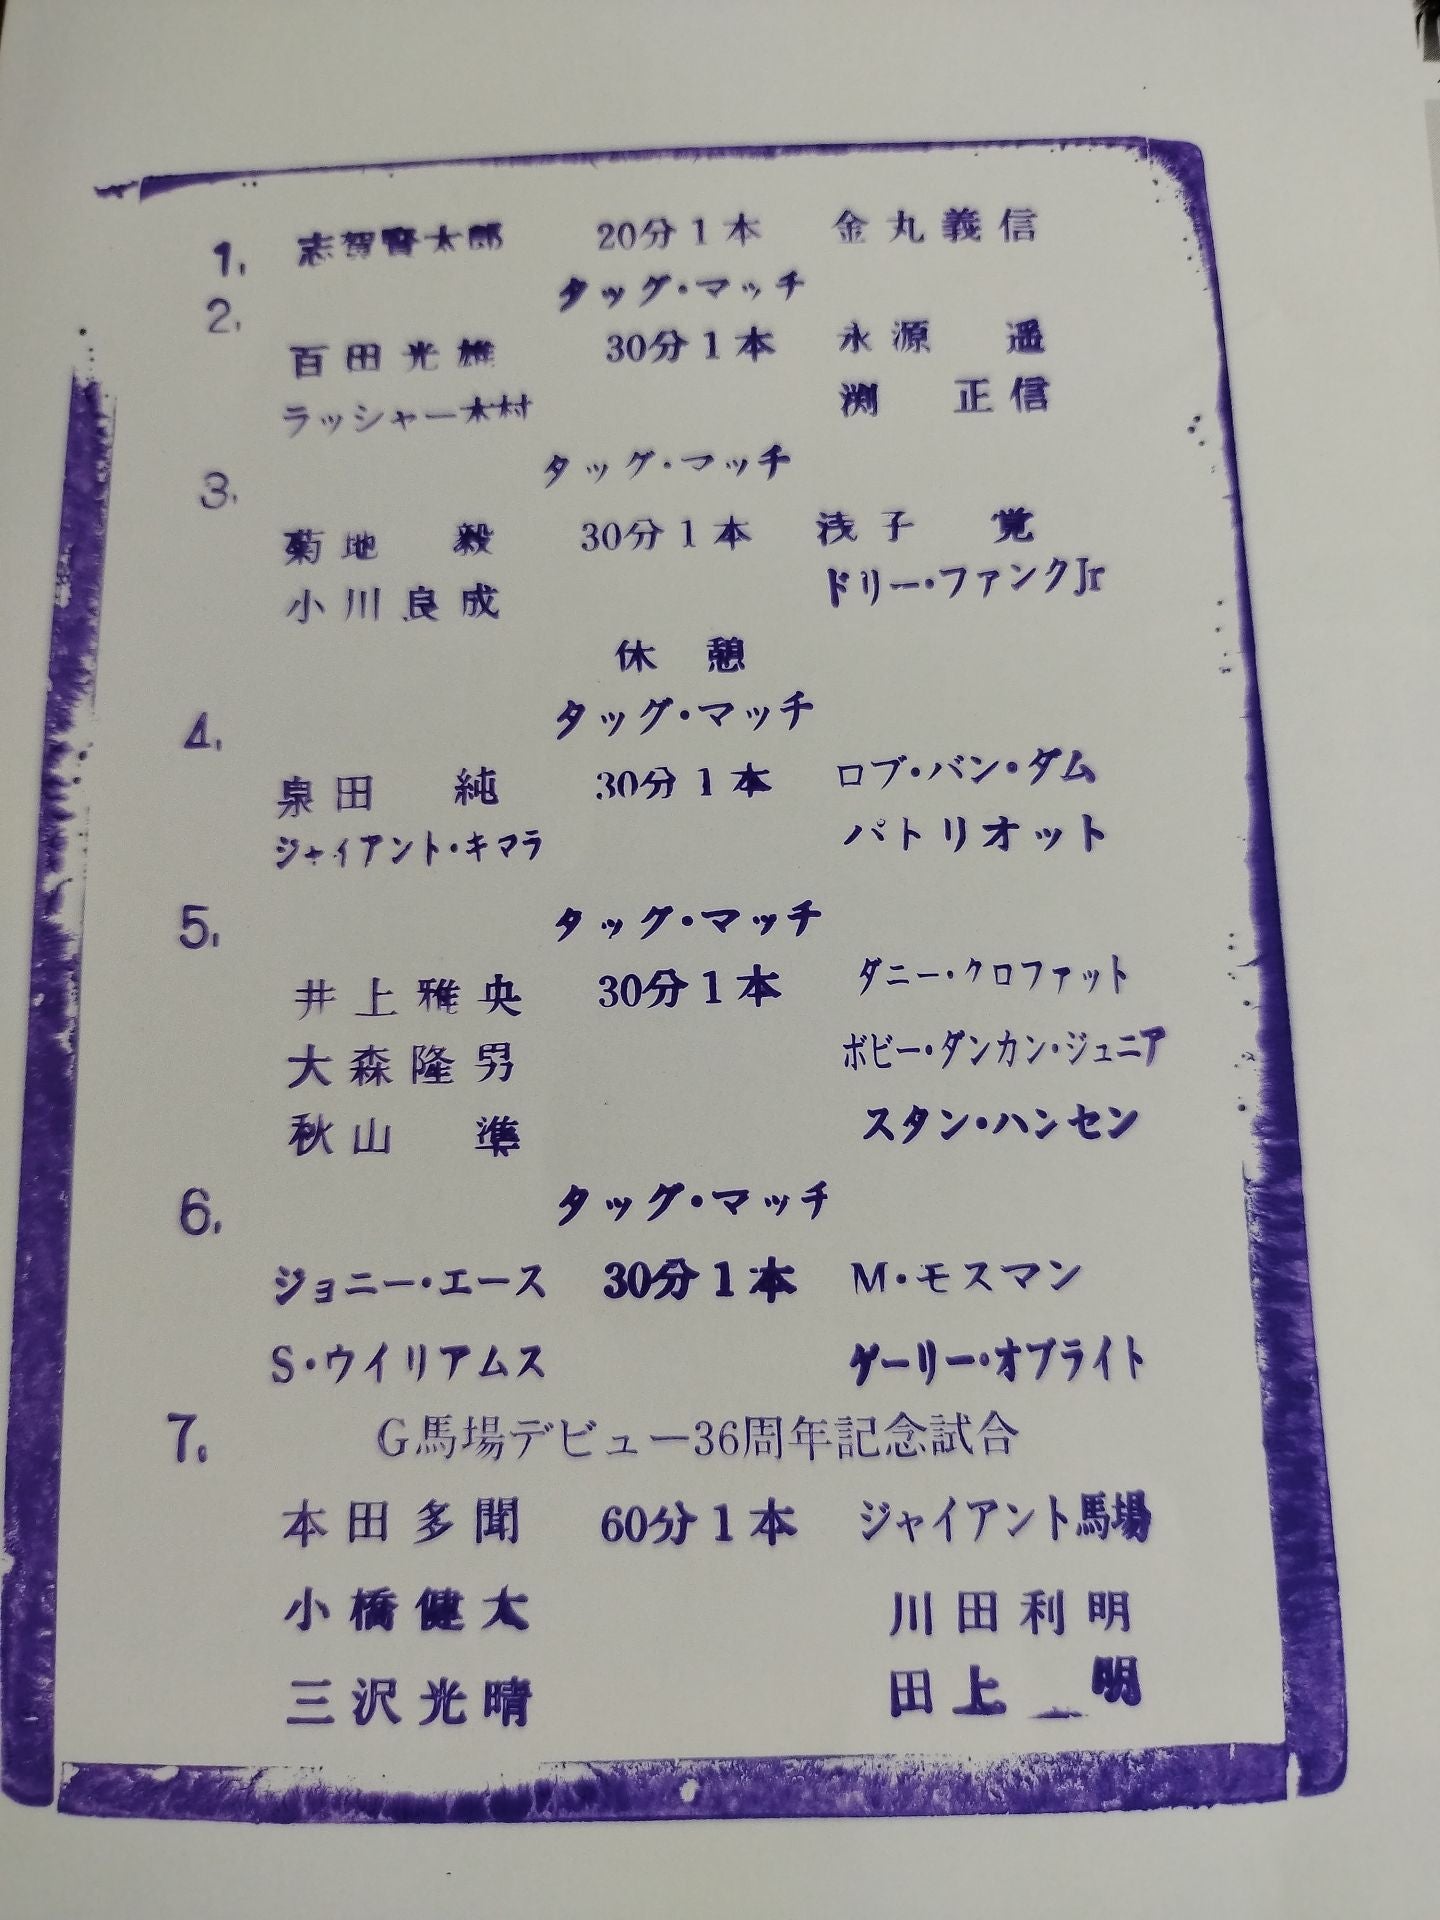 1. 志賀賢太郎 20分1本 金丸義信
2. タッグ・マッチ
百田光雄 30分1本 永源 遥
ラッシャー木村 渕 正信
3. タッグ・マッチ
菊地 毅 30分1本 浅子 覚
小川良成 ドリー・ファンクJr
休憩
4. タッグ・マッチ
泉田 純 30分1本 ロブ・バン・ダム
ジャイアント・キマラ パトリオット
5. タッグ・マッチ
井上雅央 30分1本 ダニー・クロファット
大森隆男 ボビー・ダンカン・ジュニア
秋山 準 スタン・ハンセン
6. タッグ・マッチ
ジョニー・エース 30分1本 M・モスマン
S・ウイリアムス ゲーリー・オブライト
7. G馬場デビュー36周年記念試合
本田多聞 60分1本 ジャイアント馬場
小橋健太 川田利明
三沢光晴 田上 明